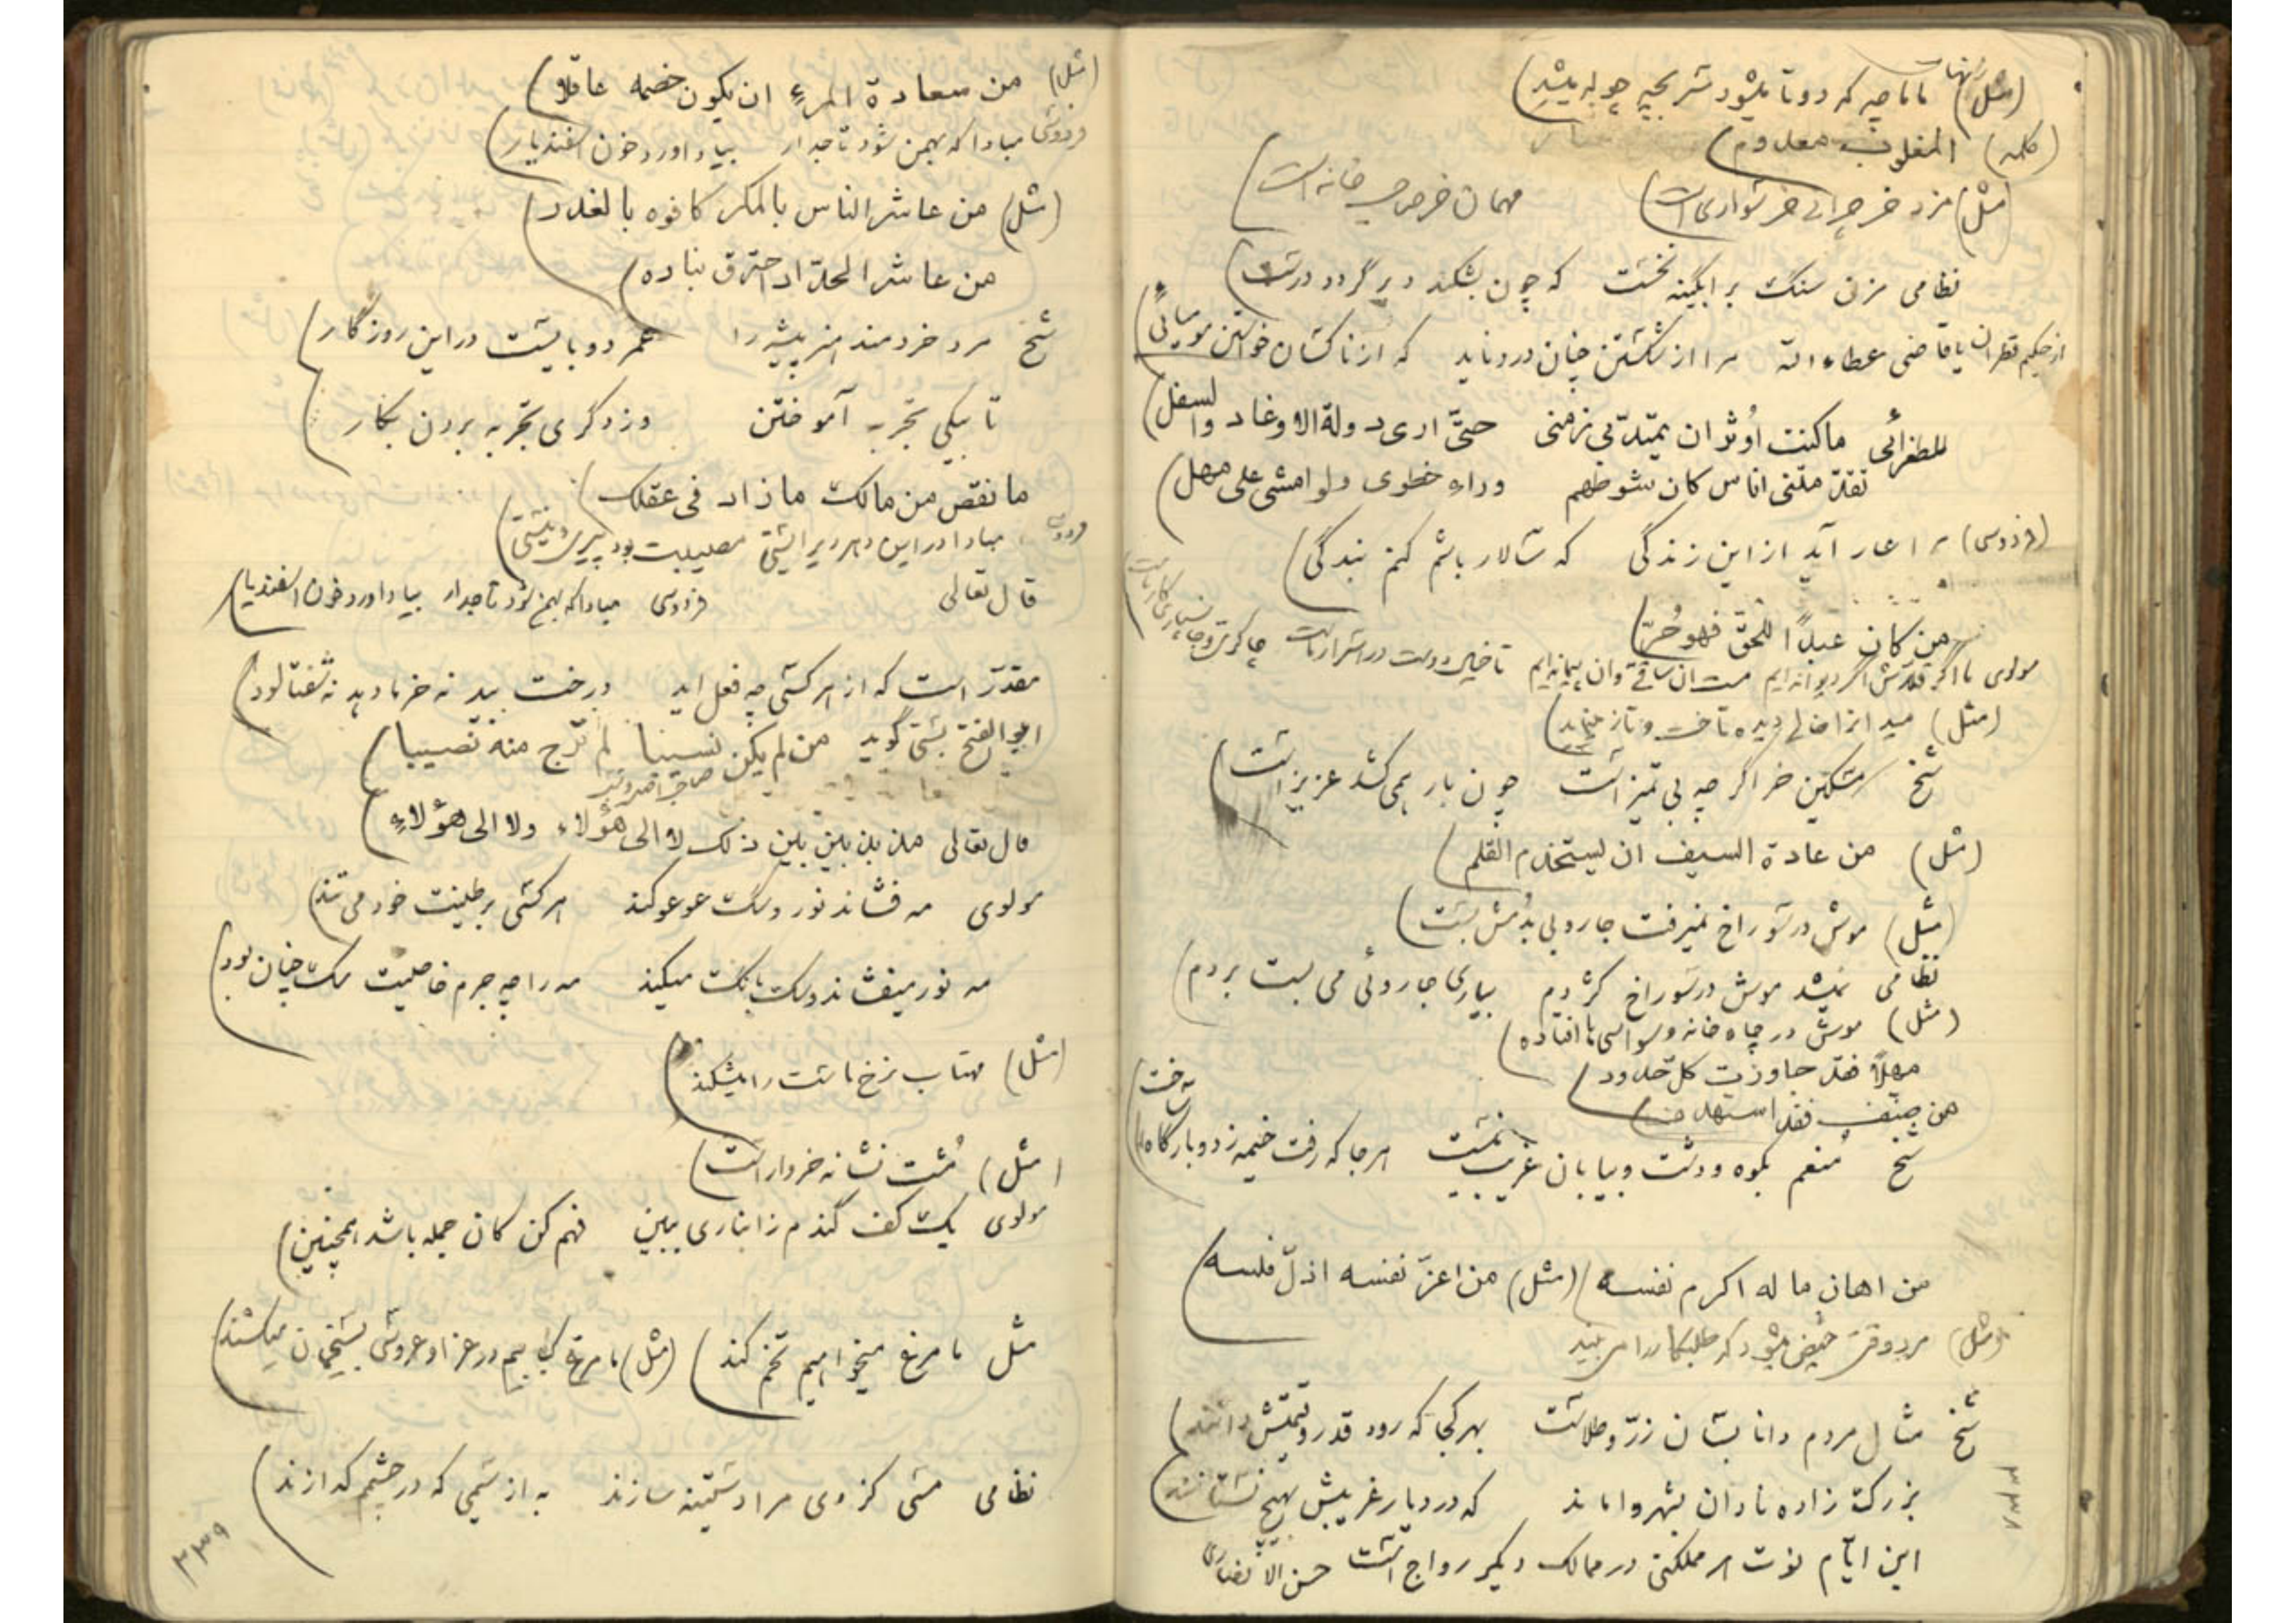 (مثل) ماما چه که دو تا میشود سر بچه چوله میشد)
(کلمه) المغلوب معدوم)
(مثل) مزد خر چرانی خر سواری است) مهمان خر صاحب خانه است)
نظامی مزن سنگ بر آبگینه نخست که چون بشکند دیر گردد درست)
از حکیم قطران یا قاضی عطاء الله مرا از شکستن چنان درد ناید که از ناکسان خواستن مومیائی)
للطغرائی ما کنت اُوثر ان یمتدّ بی زمنی حتیّ اری دولة الاوغاد والسفل)
تقدّمتنی اناس کان شوطهم وراء خطوی ولو امشی علی مهل)
(فردوسی) مرا عار آید از این زندگی که سالار باشم کنم بندگی)
من کان عبداً للحقّ فهو حُرّ)
مولوی ما اگر قلاش اگر دیوانه‌ایم مست آن ساقی و آن پیمانه‌ایم تا خیال دوست در اسرار ماست چاکری و جانسپاری کار ماست
شیخ مسکین خر اگر چه بی تمیز است چون بار همی کشد عزیز است)
(مثل) من عادة السیف ان یستخدم القلم)
(مثل) موش در سوراخ نمیرفت جاروبی بدُمش بست)
نظامی نمیشد موش در سوراخ کژدم بیاری جاروئی می بست بر دم)
(مثل) موش در چاه خانه وسواسی‌ها افتاده)
مهلاً فقد جاوزت کلّ حدود)
من صنّف فقد استهدف)
شیخ مُنعم بکوه و دشت و بیابان غریب نیست هر جا که رفت خیمه زد و بارگاه ساخت)
من اهان ماله اکرم نفسه) (مثل) من اعزّ نفسه اذلّ فلسه)
(مثل) مرد وقتی حیض میشود که طلبکار را می بیند
شیخ مثال مردم دانا بسان زرّ و طلاست بهر کجا که رود قدر و قیمتش دانند)
بزرگ زاده نادان بشهر واماند که در دیار غریبش بهیچ نستانند)
این ایّام نوت هر مملکتی در ممالک دیگر رواج است حسن الانصاری
۳۳۸
(مثل) من سعادة المرءِ ان یکون خصمه عاقلا)
فردوسی مبادا که بهمن شود تاجدار بیاد آورد خون اسفندیار)
(مثل) من عاشر الناس بالمکر کافوه بالغدر)
من عاشر الحدّاد احترق بناره)
شیخ مرد خردمند هنر پیشه را عمر دو بایست در این روزگار)
تا بیکی تجربه آموختن در دگری تجربه بردن بکار)
ما نقص من مالک ما زاد فی عقلک)
فردوسی مبادا در این دهر دیر ایستی مصیبت بود پیری و نیستی)
قال تعالی فردوسی مبادا که بهمن شود تاجدار بیاد آورد خون اسفندیار)
مقدّر است که از هر کسی چه فعل آید درخت بید نه خرما دهد نه شفتالود)
ابو الفتح بستی گوید من لم یکن نسیبا لم تُرج منه نصیبا)
قال تعالی مذبذبین بین ذلک لا الی هؤلاء ولا الی هؤلاءِ)
مولوی مه فشاند نور و سگ عوعو کند هر کسی بر طینت خود می تند)
مه نور میفشاند و سگ بانگ میکند مه را چه جرم خاصیت سگ چنان بود)
(مثل) مهتاب نرخ ماست را میشکند)
(مثل) مُشت نشانه خروار است)
مولوی یک کف گندم ز انباری ببین فهم کن کان جمله باشد همچنین)
مثل ما مرغ میخواهیم تخم کند) (مثل) ما مرغ که هم در عزا و عروسی میکشند)
نظامی مسی کز وی مرا دستینه سازند به از سیمی که در چشمم گدازند)
۳۳۹